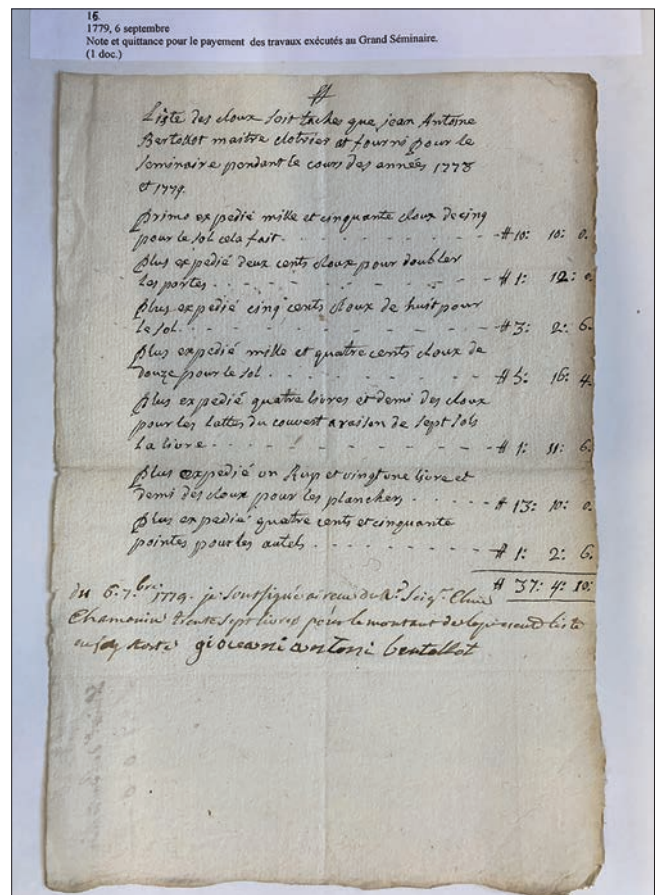 16.
1779, 6 septembre
Note et quittance pour le payement des travaux exécutés au Grand Séminaire.
(1 doc.)
Liste des cloux soit taches que jean Antoine
Bertollot maitre clotrier at fourni pour le
seminaire pendant le cours des années 1778
et 1779.
Primo expedié mille et cinquante cloux de cinq
pour le sol cela fait - - - - # 10: 10: 0.
Plus expedié deux cents cloux pour doubler
les portes - - - - # 1: 12: 0.
Plus expedié cinq cents cloux de huit pour
le sol - - - - # 3: 2: 6.
Plus expedié mille et quatre cents cloux de
douze pour le sol - - - - # 5: 16: 4.
Plus expedié quatre livres et demi des cloux
pour les lattes du couvert a raison de sept sols
la livre - - - - # 1: 11: 6.
Plus expedié un Rup et vingt une livre et
demi des cloux pour les planchers - - - - # 13: 10: 0.
Plus expedié quatre cents et cinquante
pointes pour les autels - - - - # 1: 2: 6.
# 37: 4: 10:
du 6. 7.bre 1779. je soussigné ai reçu du Rd Seigr.
Chamonin trente sept livres pour le montant de la presente liste
giovanni antoni bertollot